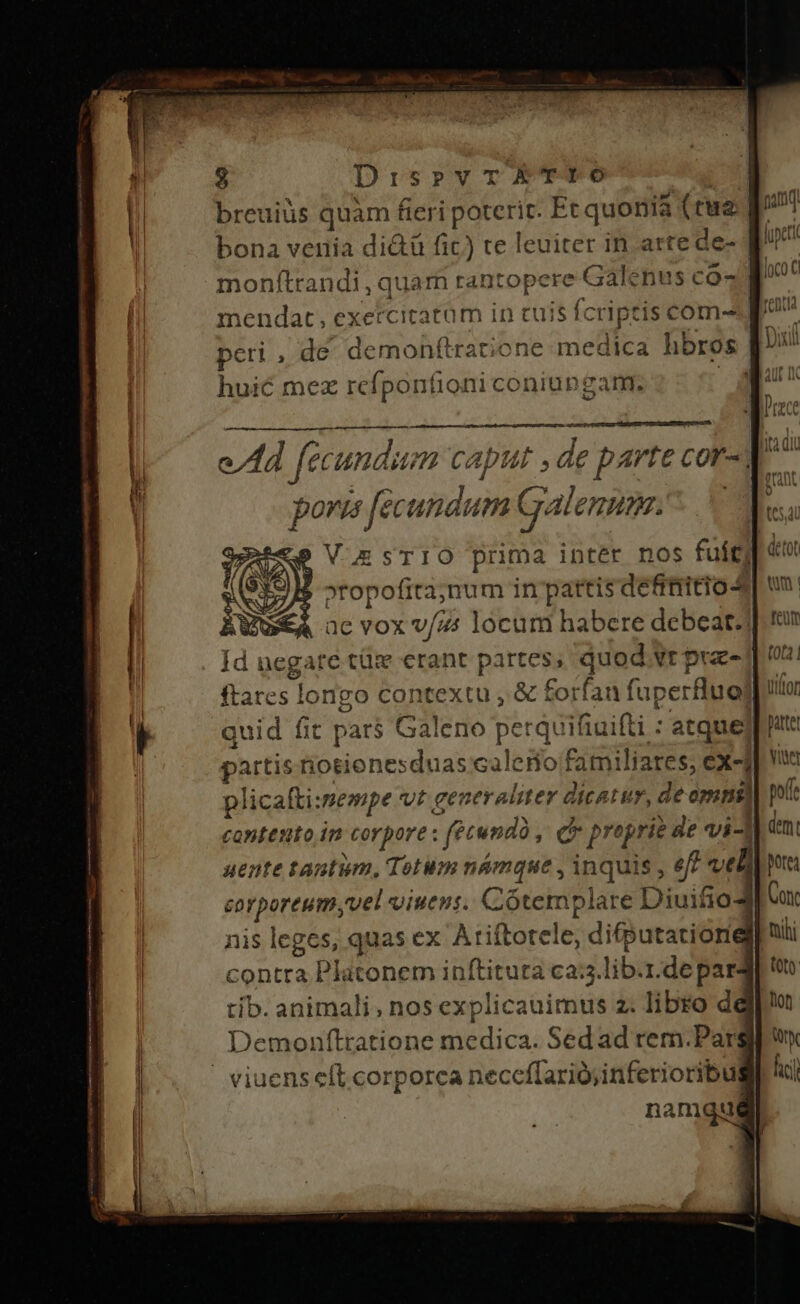 8 DISPVTATIO
breuiùs quàm fieri poterit. Et quoniã (tua
bona venia dictũ sit) te leuiter in arte de-
monſtrandi, quam tantopere Galenus cõ-
mendat, exercitatũm in tuis ſcriptis com-
peri, de demonſtratione medica libros
huic meæ reſponſioni coniungam.
Ad ſecundum caput, de parte cor-
poris ſecundum Galenum.
VÆSTIO prima inter nos fuit,
propoſita; num in partis definitio-
ne vox vſus locum habere debeat.
Id negare tuæ erant partes, quod vt præ-
ſtares longo contextu, & forſan ſuperfluo
quid ſit pars Galeno perquiſiuiſti : atque
partis notiones duas Galeno familiares, ex-
plicaſti: nempe vt generaliter dicatur, de omni
contento in corpore : ſecundò, & propriè de vi-
uente tantùm, Totum námque, inquis, eſt vel
corporeum, vel viuens. Cõtemplare Diuiſio-
nis leges, quas ex Ariſtotele, diſputatione
contra Platonem inſtituta ca.3. lib.1. de par-
tib. animali, nos explicauimus 2. libro de
Demonſtratione medica. Sed ad rem. Pars
viuens eſt corporea neceſſariò, inferioribus
namque